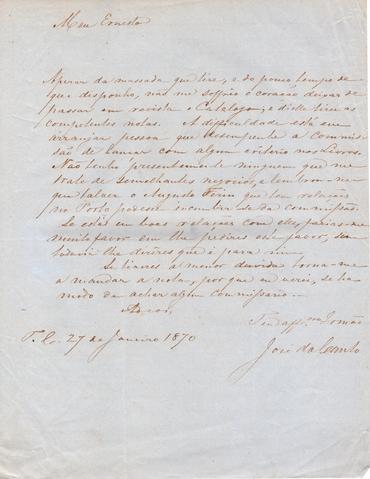 Meu Ernesto
Apesar da massada que tive, e do pouco tempo de
que disponho, não me soffreo o coração deixar de
passar em revista o Catalogo, e d'elle tirei as
competentes notas. A difficuldade está em
arranjar pessoa que desempenhe a commis-
são de lançar com algum criterio nos livros.
Não tenho presentemente ninguem que me
trate de semelhantes negocios, e lembrou-me
que talvez o Augusto que tem relações
no Porto podesse incumbir-se da commissão.
Se estás em boas relações com elle, farias-me
muito favor em lhe pedires esse favor, sem
todavia lhe dizeres que é para mim
Se tiveres a menor duvida torna-me
a mandar a nota, porque eu verei, se ha
modo de achar algum commissario.
Adeos,
Teu Irmão
27 de Janeiro 1870
José do Canto